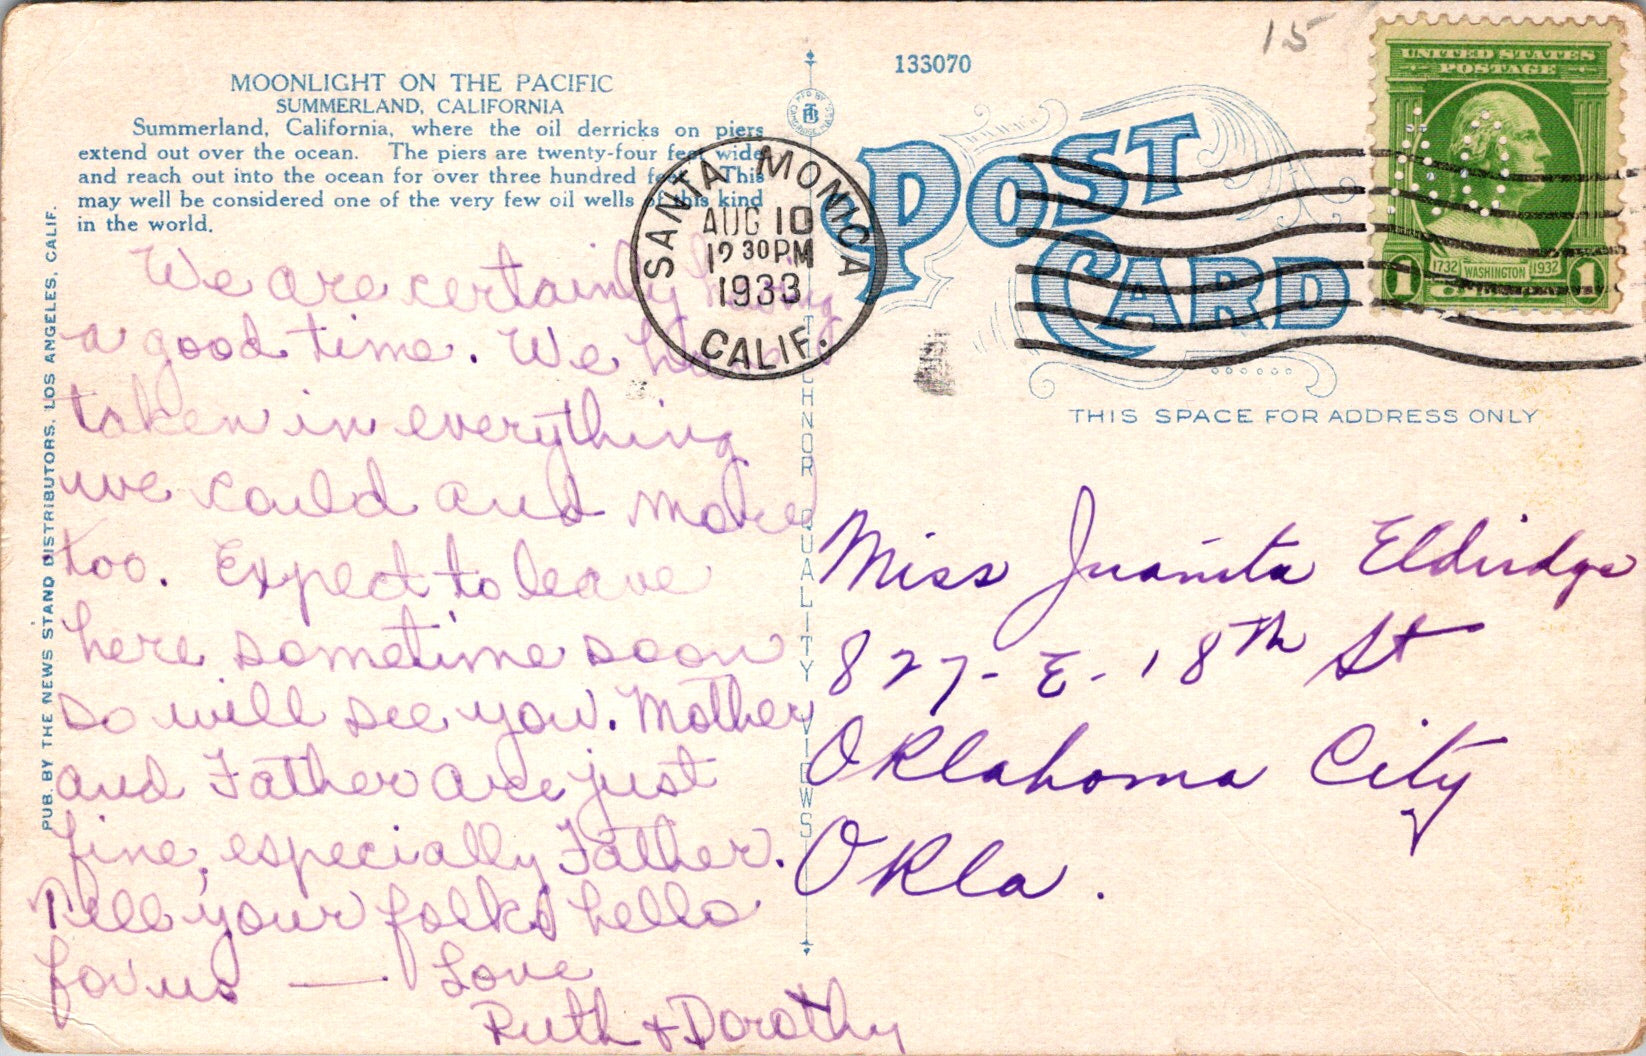 MOONLIGHT ON THE PACIFIC
SUMMERLAND, CALIFORNIA
Summerland, California, where the oil derricks on piers
extend out over the ocean. The piers are twenty-four feet wide
and reach out into the ocean for over three hundred feet. This
may well be considered one of the very few oil wells of this kind
in the world.
PUB. BY THE NEWS STAND DISTRIBUTORS, LOS ANGELES, CALIF.
We are certainly having
a good time. We have
taken in everything
we could and more
too. Expect to leave
here sometime soon
so will see you. Mother
and Father are just
fine, especially Father.
Tell your folks hello
for us — Love
Ruth + Dorothy
MFD BY
CTB
CAMBRIDGE, MASS.
TICHNOR QUALITY VIEWS
SANTA MONICA
AUG 10
12 30 PM
1933
CALIF.
133070
15
POST
CARD
THIS SPACE FOR ADDRESS ONLY
UNITED STATES
POSTAGE
1732 WASHINGTON 1932
1 1
Miss Juanita Eldridge
827 - E - 18th St
Oklahoma City
Okla.